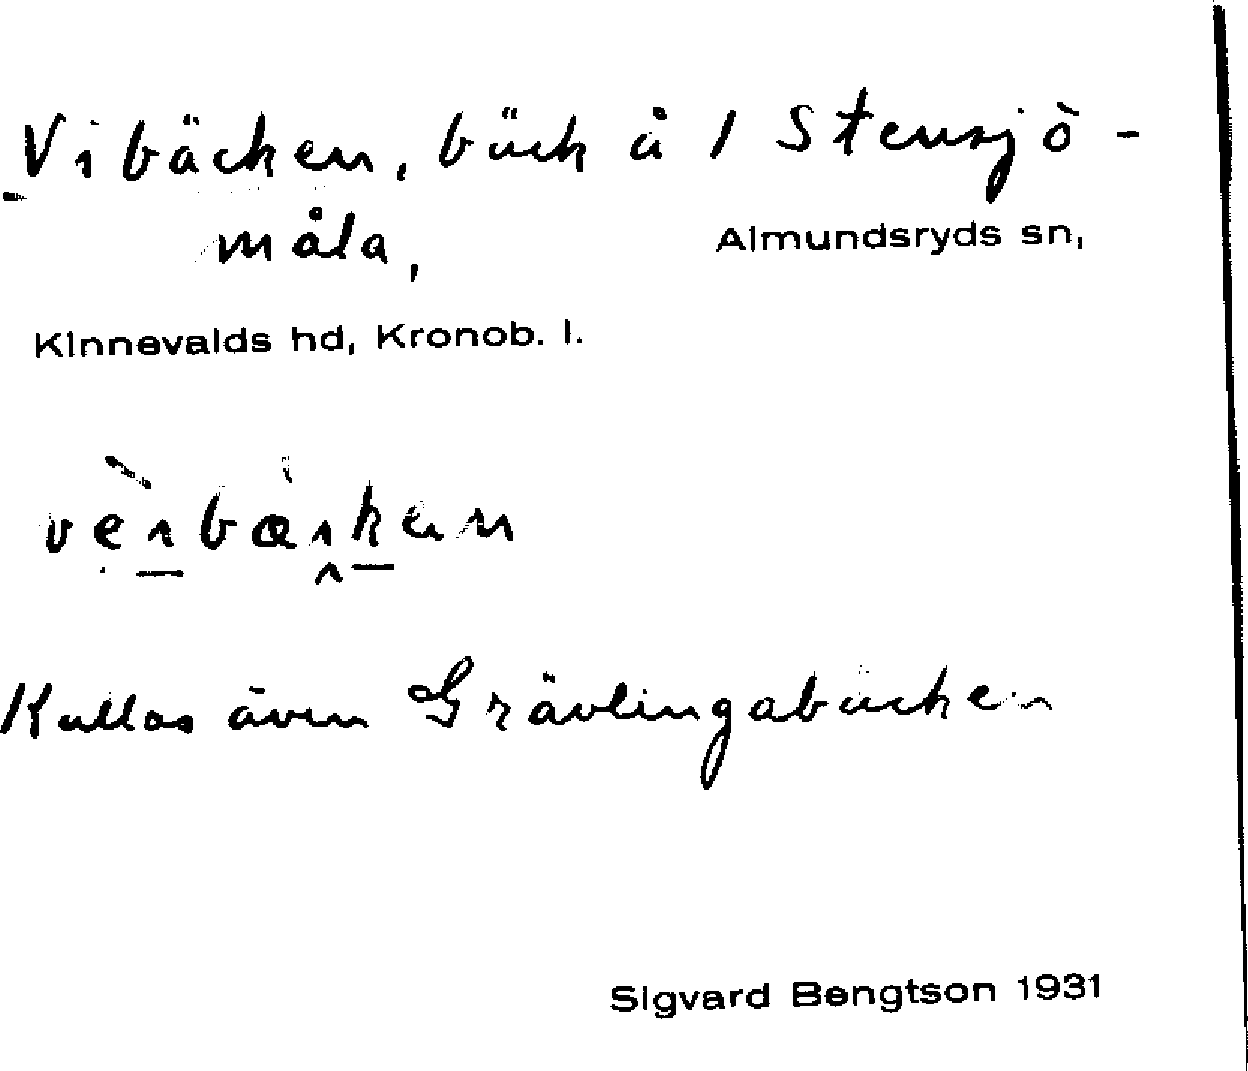 Vibäcken, bäck å 1 Stensjö-
måla,
Almundsryds sn,
Kinnevalds hd, Kronob. l.
Kallas även Grävlingabäcken
Sigvard Bengtson 1931